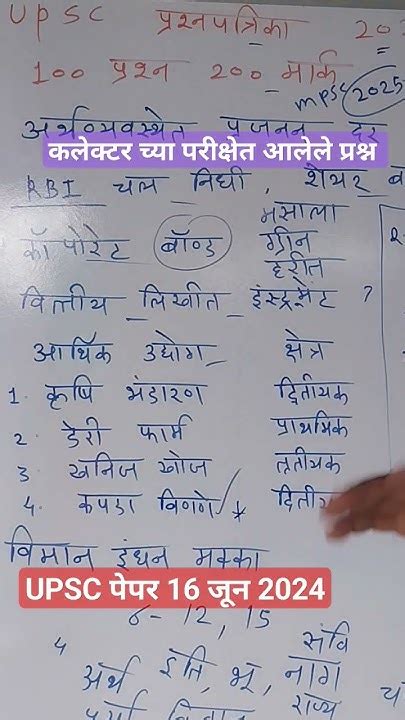 UPSC प्रश्नपत्रिका 20
100 प्रश्न 200 मार्क
MPSC 2025
अर्थव्यवस्थेत प्रजनन दर
कलेक्टर च्या परीक्षेत आलेले प्रश्न
RBI चल निधी, शेयर ब
मसाला
कॉर्पोरेट बॉण्ड ग्रीन
हरीत
वित्तीय लिखीत इंस्ट्रूमेंट ?
आर्थिक उद्योग क्षेत्र
1. कृषि भंडारण द्वितीयक
2. डेरी फार्म प्राथमिक
3 खनिज खोज तृतीयक
4. कपडा विणणे द्वितीय
विमान इंधन मक्का
UPSC पेपर 16 जून 2024
8-12, 15
4 संवि
अर्थ इति, भू, नाग
राज्य